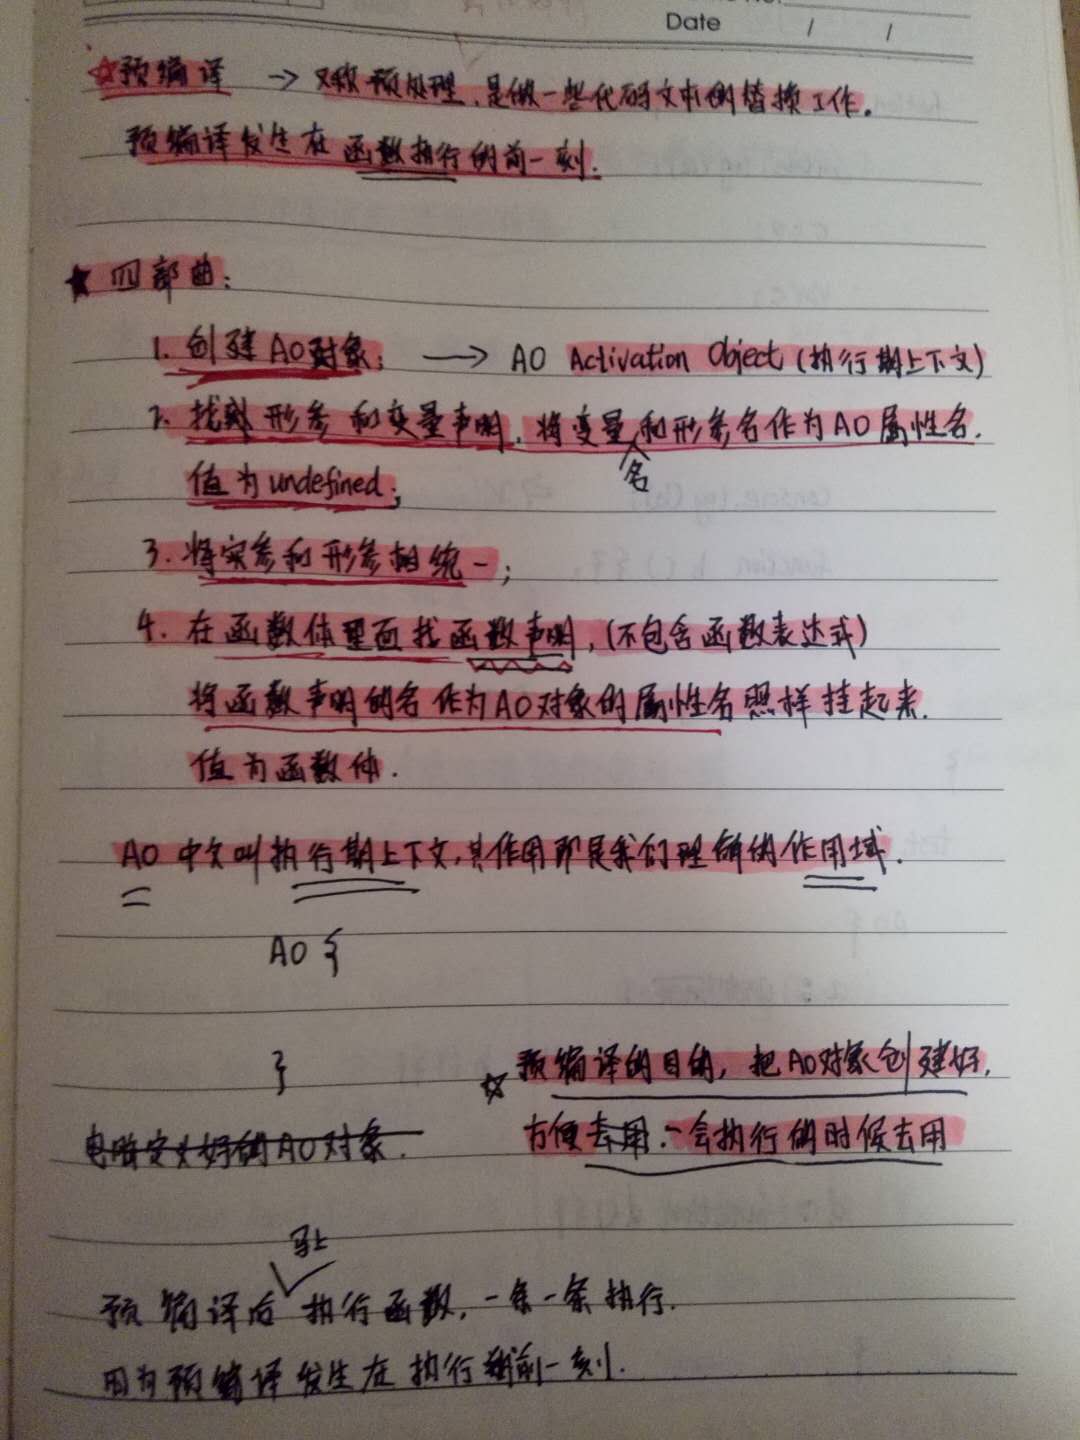 Date / /
☆预编译 → 又称预处理,是做一些代码文本的替换工作。
预编译发生在函数执行的前一刻.
★四部曲:
1. 创建AO对象; → AO Activation Object (执行期上下文)
2. 找到形参和变量声明,将变量名和形参名作为AO属性名.
值为undefined;
3. 将实参和形参相统一;
4. 在函数体里面找函数声明,(不包含函数表达式)
将函数声明的名作为AO对象的属性名照样挂起来.
值为函数体.
AO中文叫执行期上下文,其作用即是我们理解的作用域.
AO {
}
☆预编译的目的,把AO对象创建好,
电脑定义好的AO对象.
方便去用.一会执行的时候去用
预编译后马上执行函数,一条一条执行.
因为预编译发生在执行的前一刻.